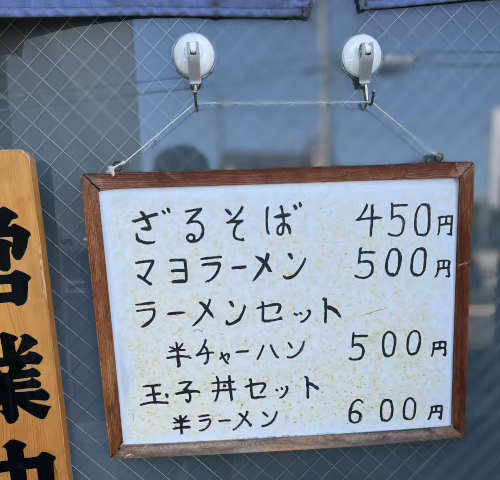 ざるそば 450円
マヨラーメン 500円
ラーメンセット
半チャーハン 500円
玉子丼セット
半ラーメン 600円
営業中